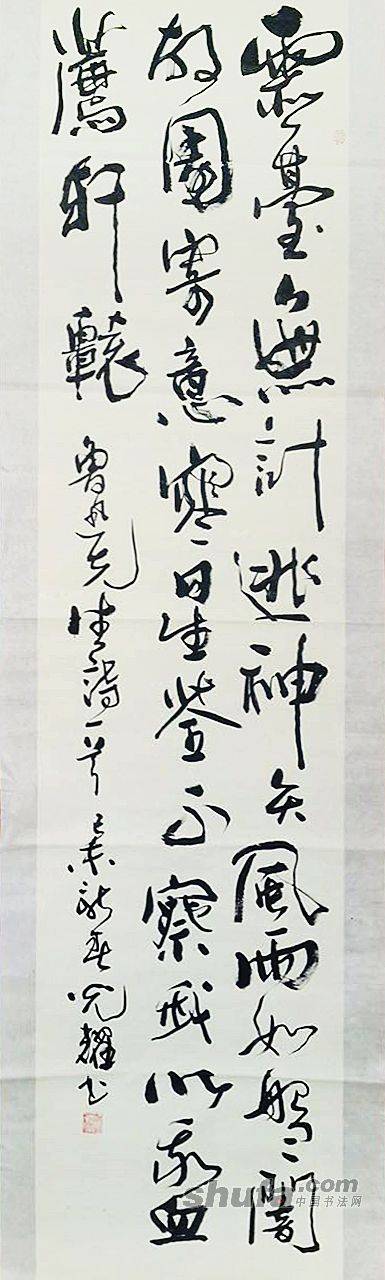 靈臺無計逃神矢風雨如磐闇
故園寄意寒星荃不察我以我血
薦軒轅 魯迅先生詩一首 未新春 耀书
shufa.com
中国书法网